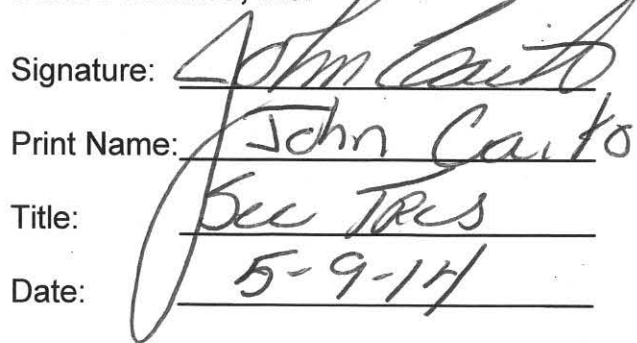 Signature: John Caito
Print Name: John Caito
Title: Sec Tres
Date: 5-9-14